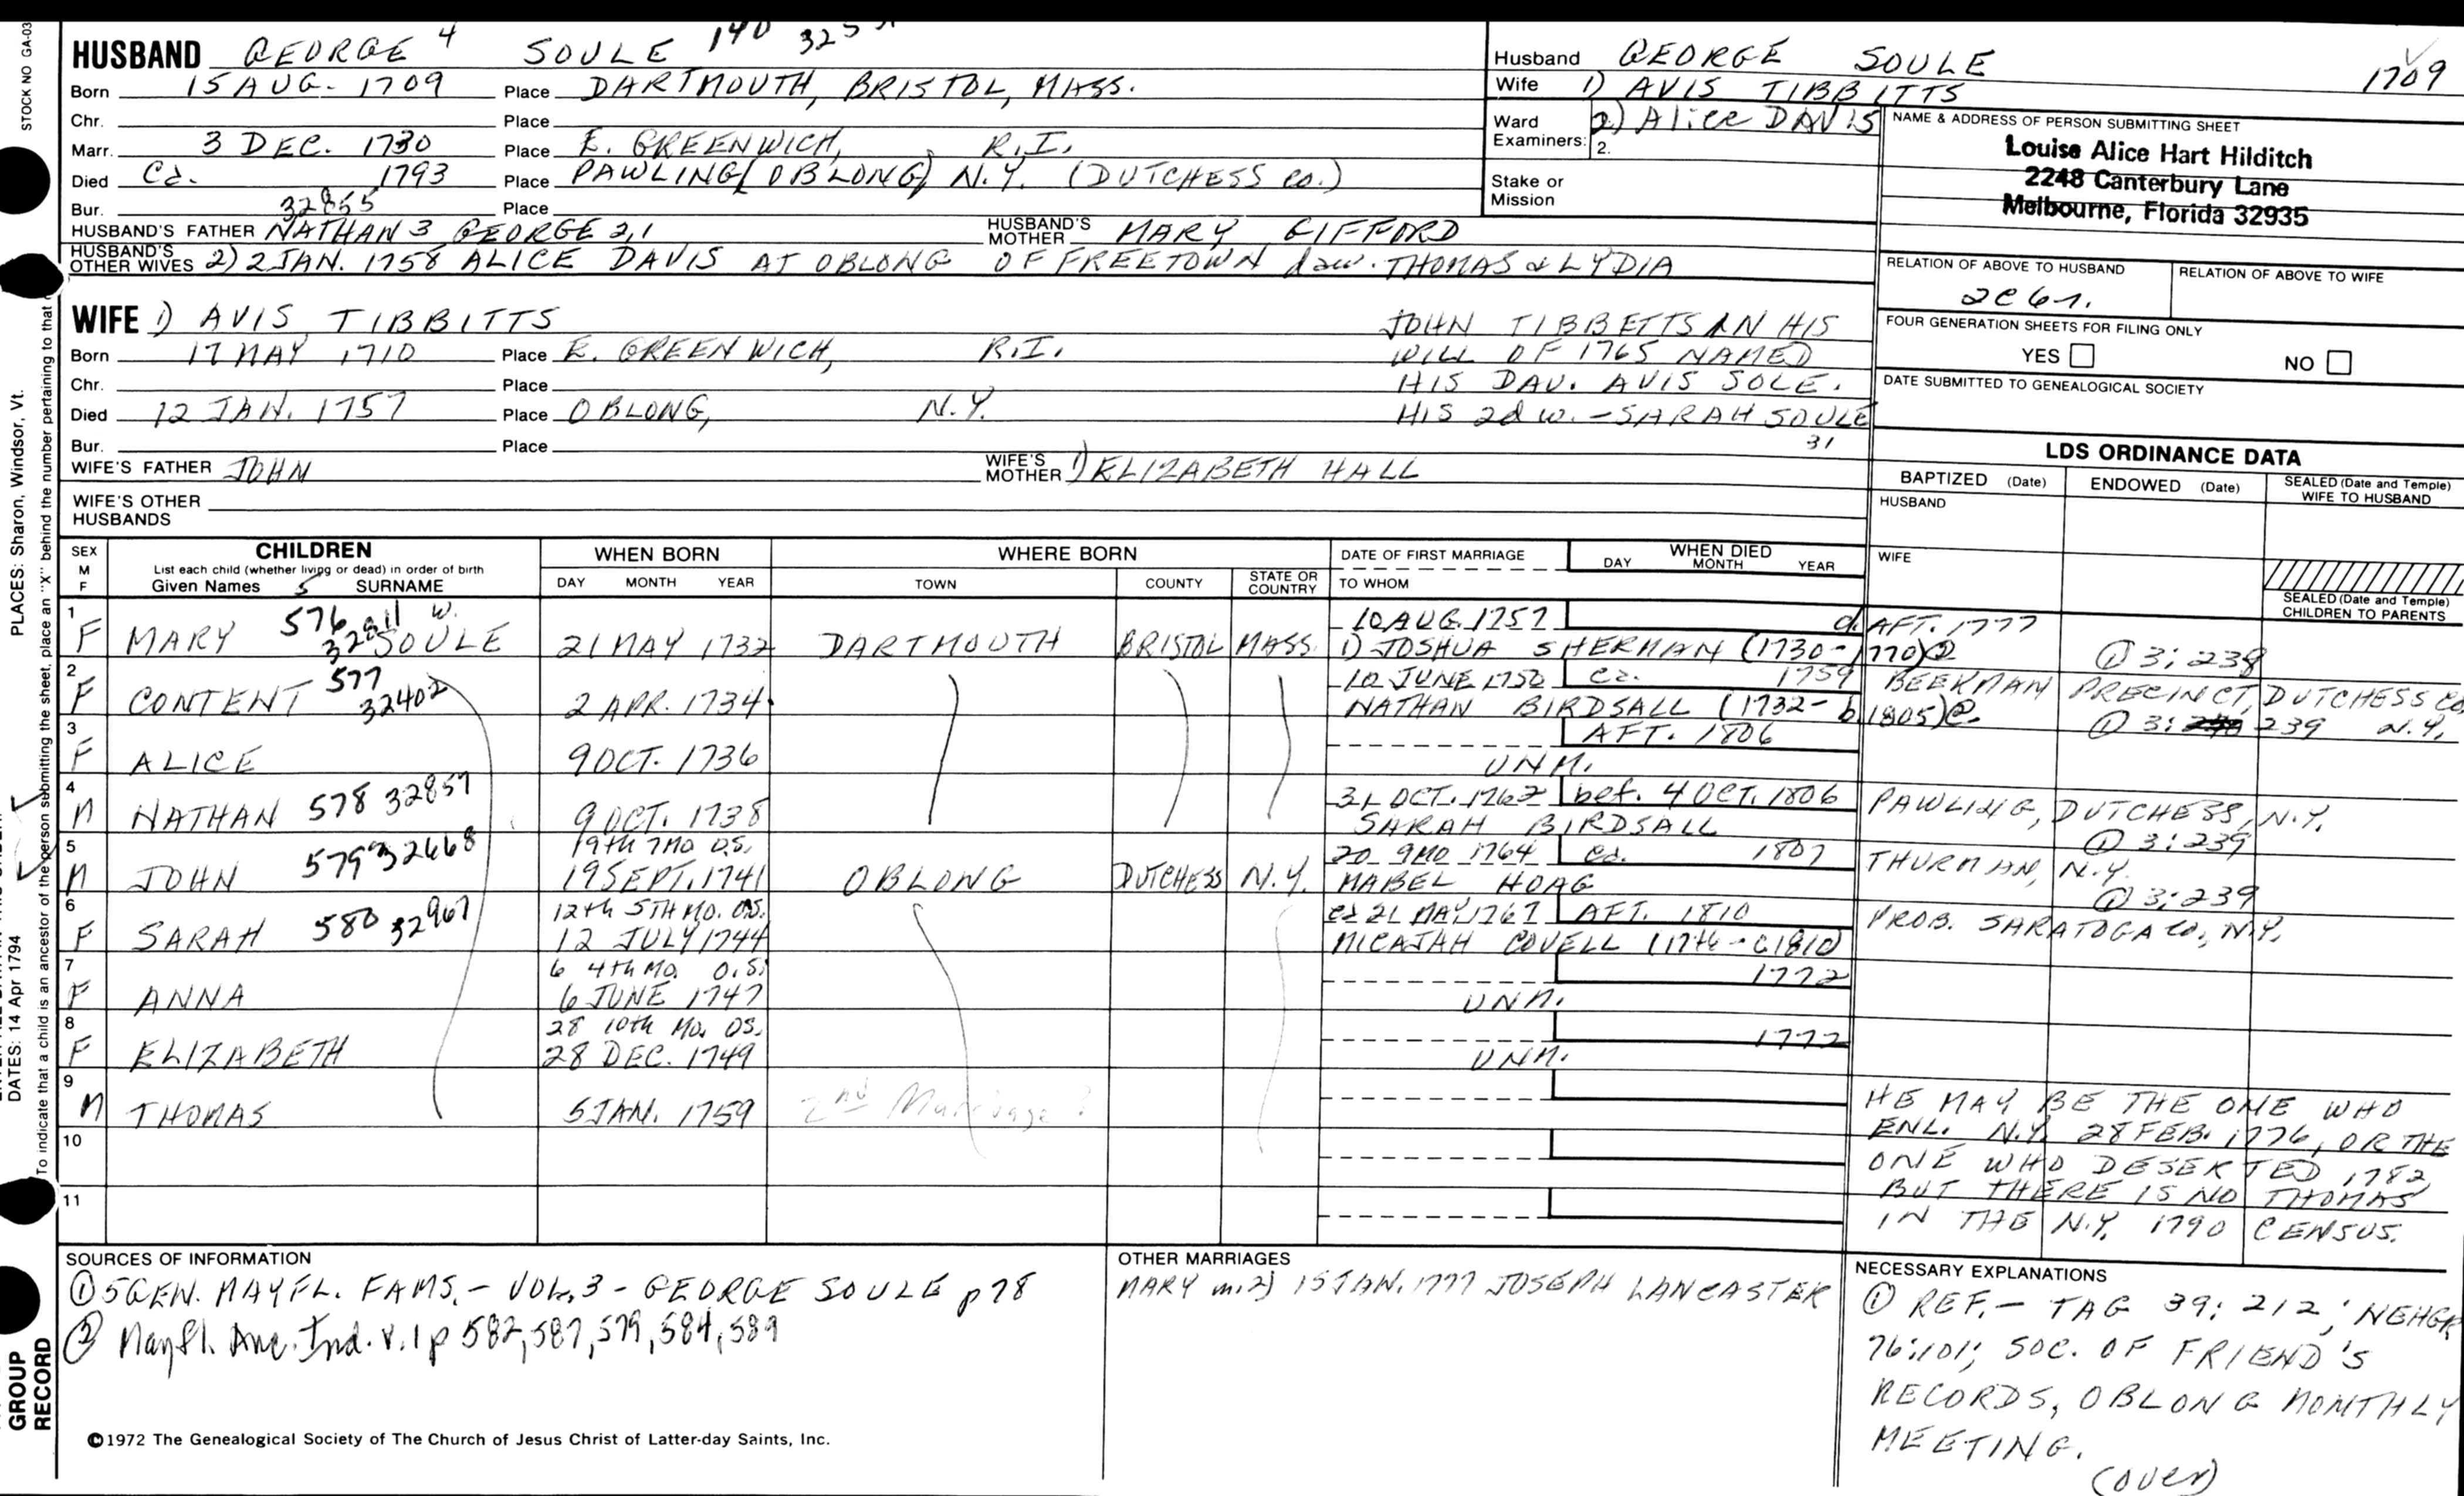 STOCK NO GA-03
HUSBAND GEORGE 4 SOULE 140
Born 15 AUG. 1709 Place DARTMOUTH, BRISTOL, MASS.
Chr. Place
Marr. 3 DEC. 1730 Place E. GREENWICH, R.I.
Died Ca. 1793 Place PAWLING (OBLONG) N.Y. (DUTCHESS CO.)
Bur. 32855 Place
HUSBAND'S FATHER NATHAN 3 GEORGE 2,1 HUSBAND'S MOTHER MARY GIFFORD
HUSBAND'S OTHER WIVES 2) 2 JAN. 1758 ALICE DAVIS AT OBLONG OF FREETOWN dau. THOMAS & LYDIA
Husband GEORGE SOULE 1709
Wife 1) AVIS TIBBITTS
Ward 2) Alice DAVIS
Examiners: 2.
Stake or Mission
NAME & ADDRESS OF PERSON SUBMITTING SHEET
Louise Alice Hart Hilditch
2248 Canterbury Lane
Melbourne, Florida 32935
RELATION OF ABOVE TO HUSBAND RELATION OF ABOVE TO WIFE
2C 6r.
FOUR GENERATION SHEETS FOR FILING ONLY
YES NO
DATE SUBMITTED TO GENEALOGICAL SOCIETY
WIFE 1) AVIS TIBBITTS
Born 17 MAY 1710 Place E. GREENWICH, R.I.
Chr. Place
Died 12 JAN. 1757 Place OBLONG, N.Y.
Bur. Place
JOHN TIBBETTS IN HIS
WILL OF 1765 NAMED
HIS DAU. AVIS SOLE.
HIS 2d w. - SARAH SOULE
31
WIFE'S FATHER JOHN WIFE'S MOTHER 1) ELIZABETH HALL
WIFE'S OTHER HUSBANDS
LDS ORDINANCE DATA
BAPTIZED (Date) ENDOWED (Date) SEALED (Date and Temple) WIFE TO HUSBAND
HUSBAND
WIFE
SEALED (Date and Temple) CHILDREN TO PARENTS
SEX M F CHILDREN WHEN BORN WHERE BORN DATE OF FIRST MARRIAGE WHEN DIED
List each child (whether living or dead) in order of birth
Given Names 5 SURNAME DAY MONTH YEAR TOWN COUNTY STATE OR COUNTRY TO WHOM DAY MONTH YEAR
1 576 32811 w. 10 AUG. 1757 d. AFT. 1777
F MARY SOULE 21 MAY 1732 DARTMOUTH BRISTOL MASS. 1) JOSHUA SHERMAN (1730-1770) ② ① 3:238
2 577 32402 10 JUNE 1752 Ca. 1759 BEEKMAN PRECINCT, DUTCHESS CO.
F CONTENT 2 APR. 1734 NATHAN BIRDSALL (1732- b.1805) ① 3: 239 N.Y.
3 AFT. 1806
F ALICE 9 OCT. 1736 UNM.
4 578 32857 31 OCT. 1762 bef. 4 OCT. 1806 PAWLING, DUTCHESS, N.Y.
M NATHAN 9 OCT. 1738 SARAH BIRDSALL ① 3:239
5 579 32668 19th 7MO O.S. 20 9MO 1764 Ca. 1807 THURMAN, N.Y.
M JOHN 19 SEPT. 1741 OBLONG DUTCHESS N.Y. MABEL HOAG ① 3:239
6 580 32967 12th 5TH MO. O.S. ca 21 MAY 1767 AFT. 1810 PROB. SARATOGA CO., N.Y.
F SARAH 12 JULY 1744 MICAJAH COVELL
7 6 4th MO. O.S. 1772
F ANNA 6 JUNE 1747 UNM.
8 28 10th Mo. OS. 1772
F ELIZABETH 28 DEC. 1749 UNM.
9
M THOMAS 5 JAN. 1759 2nd Marriage?
HE MAY BE THE ONE WHO
ENL. N.Y. 28 FEB. 1776, OR THE
ONE WHO DESERTED 1782,
BUT THERE IS NO THOMAS
IN THE N.Y. 1790 CENSUS.
10
11
SOURCES OF INFORMATION
① 5 GEN. MAYFL. FAMS. - VOL. 3 - GEORGE SOULE p 78
② Mayfl. Anc. Ind. v. 1 p 582, 587, 579, 584, 589
OTHER MARRIAGES
MARY m. 2) 15 JAN. 1777 JOSEPH LANCASTER
NECESSARY EXPLANATIONS
① REF. - TAG 39: 212; NEHGR
76:101; SOC. OF FRIEND'S
RECORDS, OBLONG MONTHLY
MEETING.
(over)
©1972 The Genealogical Society of The Church of Jesus Christ of Latter-day Saints, Inc.
PLACES: Sharon, Windsor, Vt.
DATES: 14 Apr 1794
To indicate that a child is an ancestor of the person submitting the sheet, place an "X" behind the number pertaining to that
GROUP
RECORD